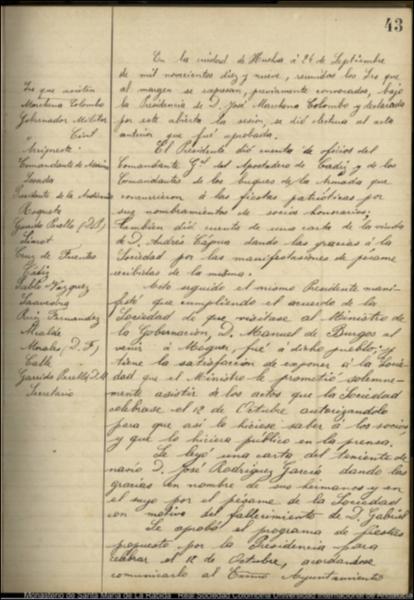 43
En la ciudad de Huelva à 26 de Septiembre
de mil novecientos diez y nueve, reunidos los Sres que
al margen se expresan, previamente convocados, bajo
la Presidencia de D. José Marchena Colombo y declarada
por este abierta la sesión, se dió lectura al acta
anterior que fué aprobada.
El Presidente dió cuenta de oficios del
Comandante Gral del Apostadero de Cadiz y de los
Comandantes de los buques de la Armada que
concurrieron à las fiestas patrióticas por
sus nombramientos de socios honorarios;
tambien dió cuenta de una carta de la viuda
de D. Andrés Tapia dando las gracias à la
Sociedad por las manifestaciones de pésame
recibidas de la misma.
Acto seguido el mismo Presidente mani-
festó que cumpliendo el acuerdo de la
Sociedad de que visitase al Ministro de
la Gobernación, D. Manuel de Burgos al
venir à Moguer, fué à dicho pueblo, y
tiene la satisfacción de exponer à la Socie-
dad que el Ministro le prometió solemne-
mente asistir de los actos que la Sociedad
celebrase el 12 de Octubre autorizandolo
para que asi lo hiciese saber à los socios
y que lo hiciera público en la prensa.
Se leyó una carta del teniente de
navio D. José Rodriguez Garcia dando las
gracias en nombre de sus hermanos y en
el suyo por el pésame de la Sociedad
con motivo del fallecimiento de D. Gabriel
Se aprobó el programa de fiestas
propuesto por la Presidencia para
celebrar el 12 de Octubre, acordandose
comunicarlo al Excmo Ayuntamiento
Sres que asisten
Marchena Colombo
Gobernador Militar
Civil
Comandante de Marina
Presidente de la Audiencia
Garrido Perelló (D. J)
Cruz de Fuentes
Cádiz
Pablo Vázquez
Ruiz Fernandez
Alcalde
Morales (D. F)
Calle
Garrido Perelló D. M
Secretario
Monasterio de Santa María de La Rábida. Real Sociedad Colombina Onubense. Universidad Internacional de Andalucía